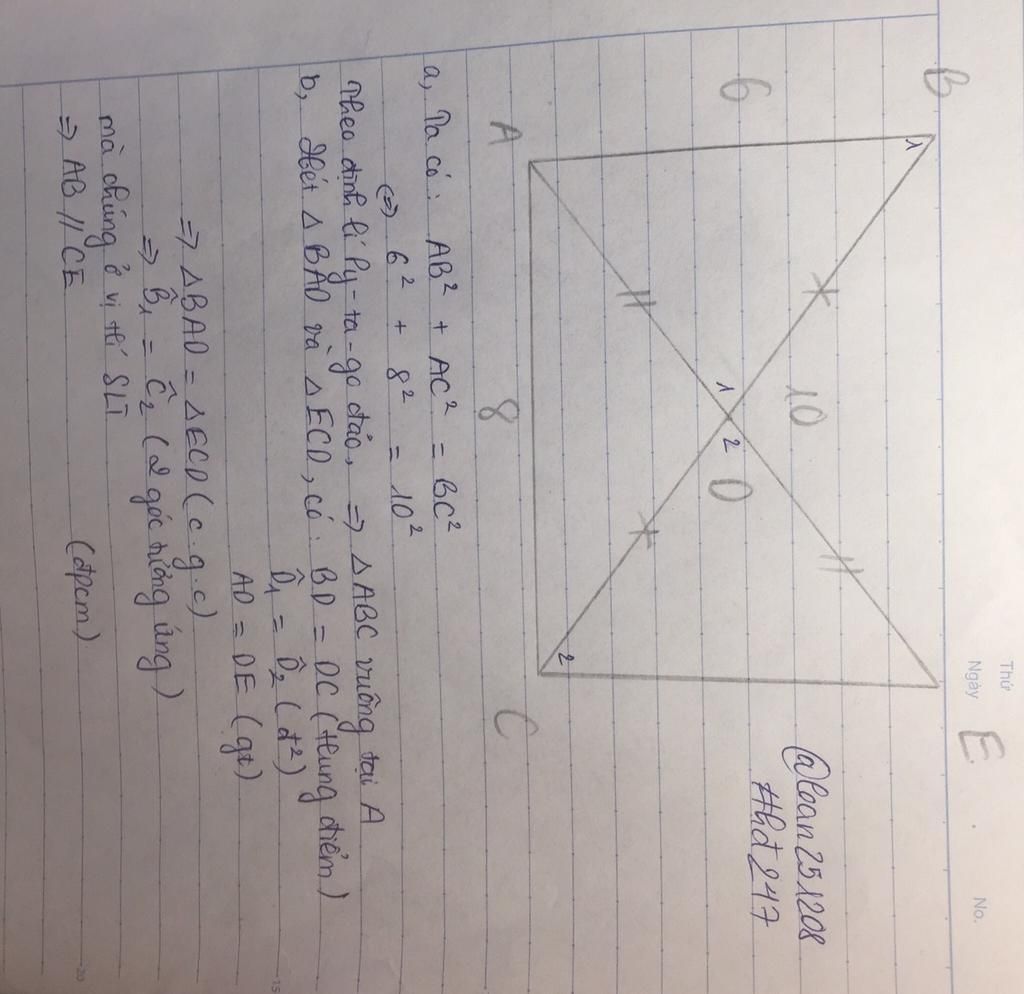 Thứ
Ngày
No.
B
E
@loan251208
#hđ247
1
6
10
1
2
D
2
A
8
C
a, Ta có: AB² + AC² = BC²
(=> 6² + 8² = 10²
Theo định lí Py-ta-go đảo, => △ABC vuông tại A
b, Xét △BAD và △ECD, có: BD = DC (trung điểm)
D̂₁ = D̂₂ (đ²)
AD = DE (gt)
=> △BAD = △ECD (c.g.c)
=> B̂₁ = Ĉ₂ (2 góc tương ứng)
mà chúng ở vị trí SLT
=> AB // CE
(đpcm)
15
20